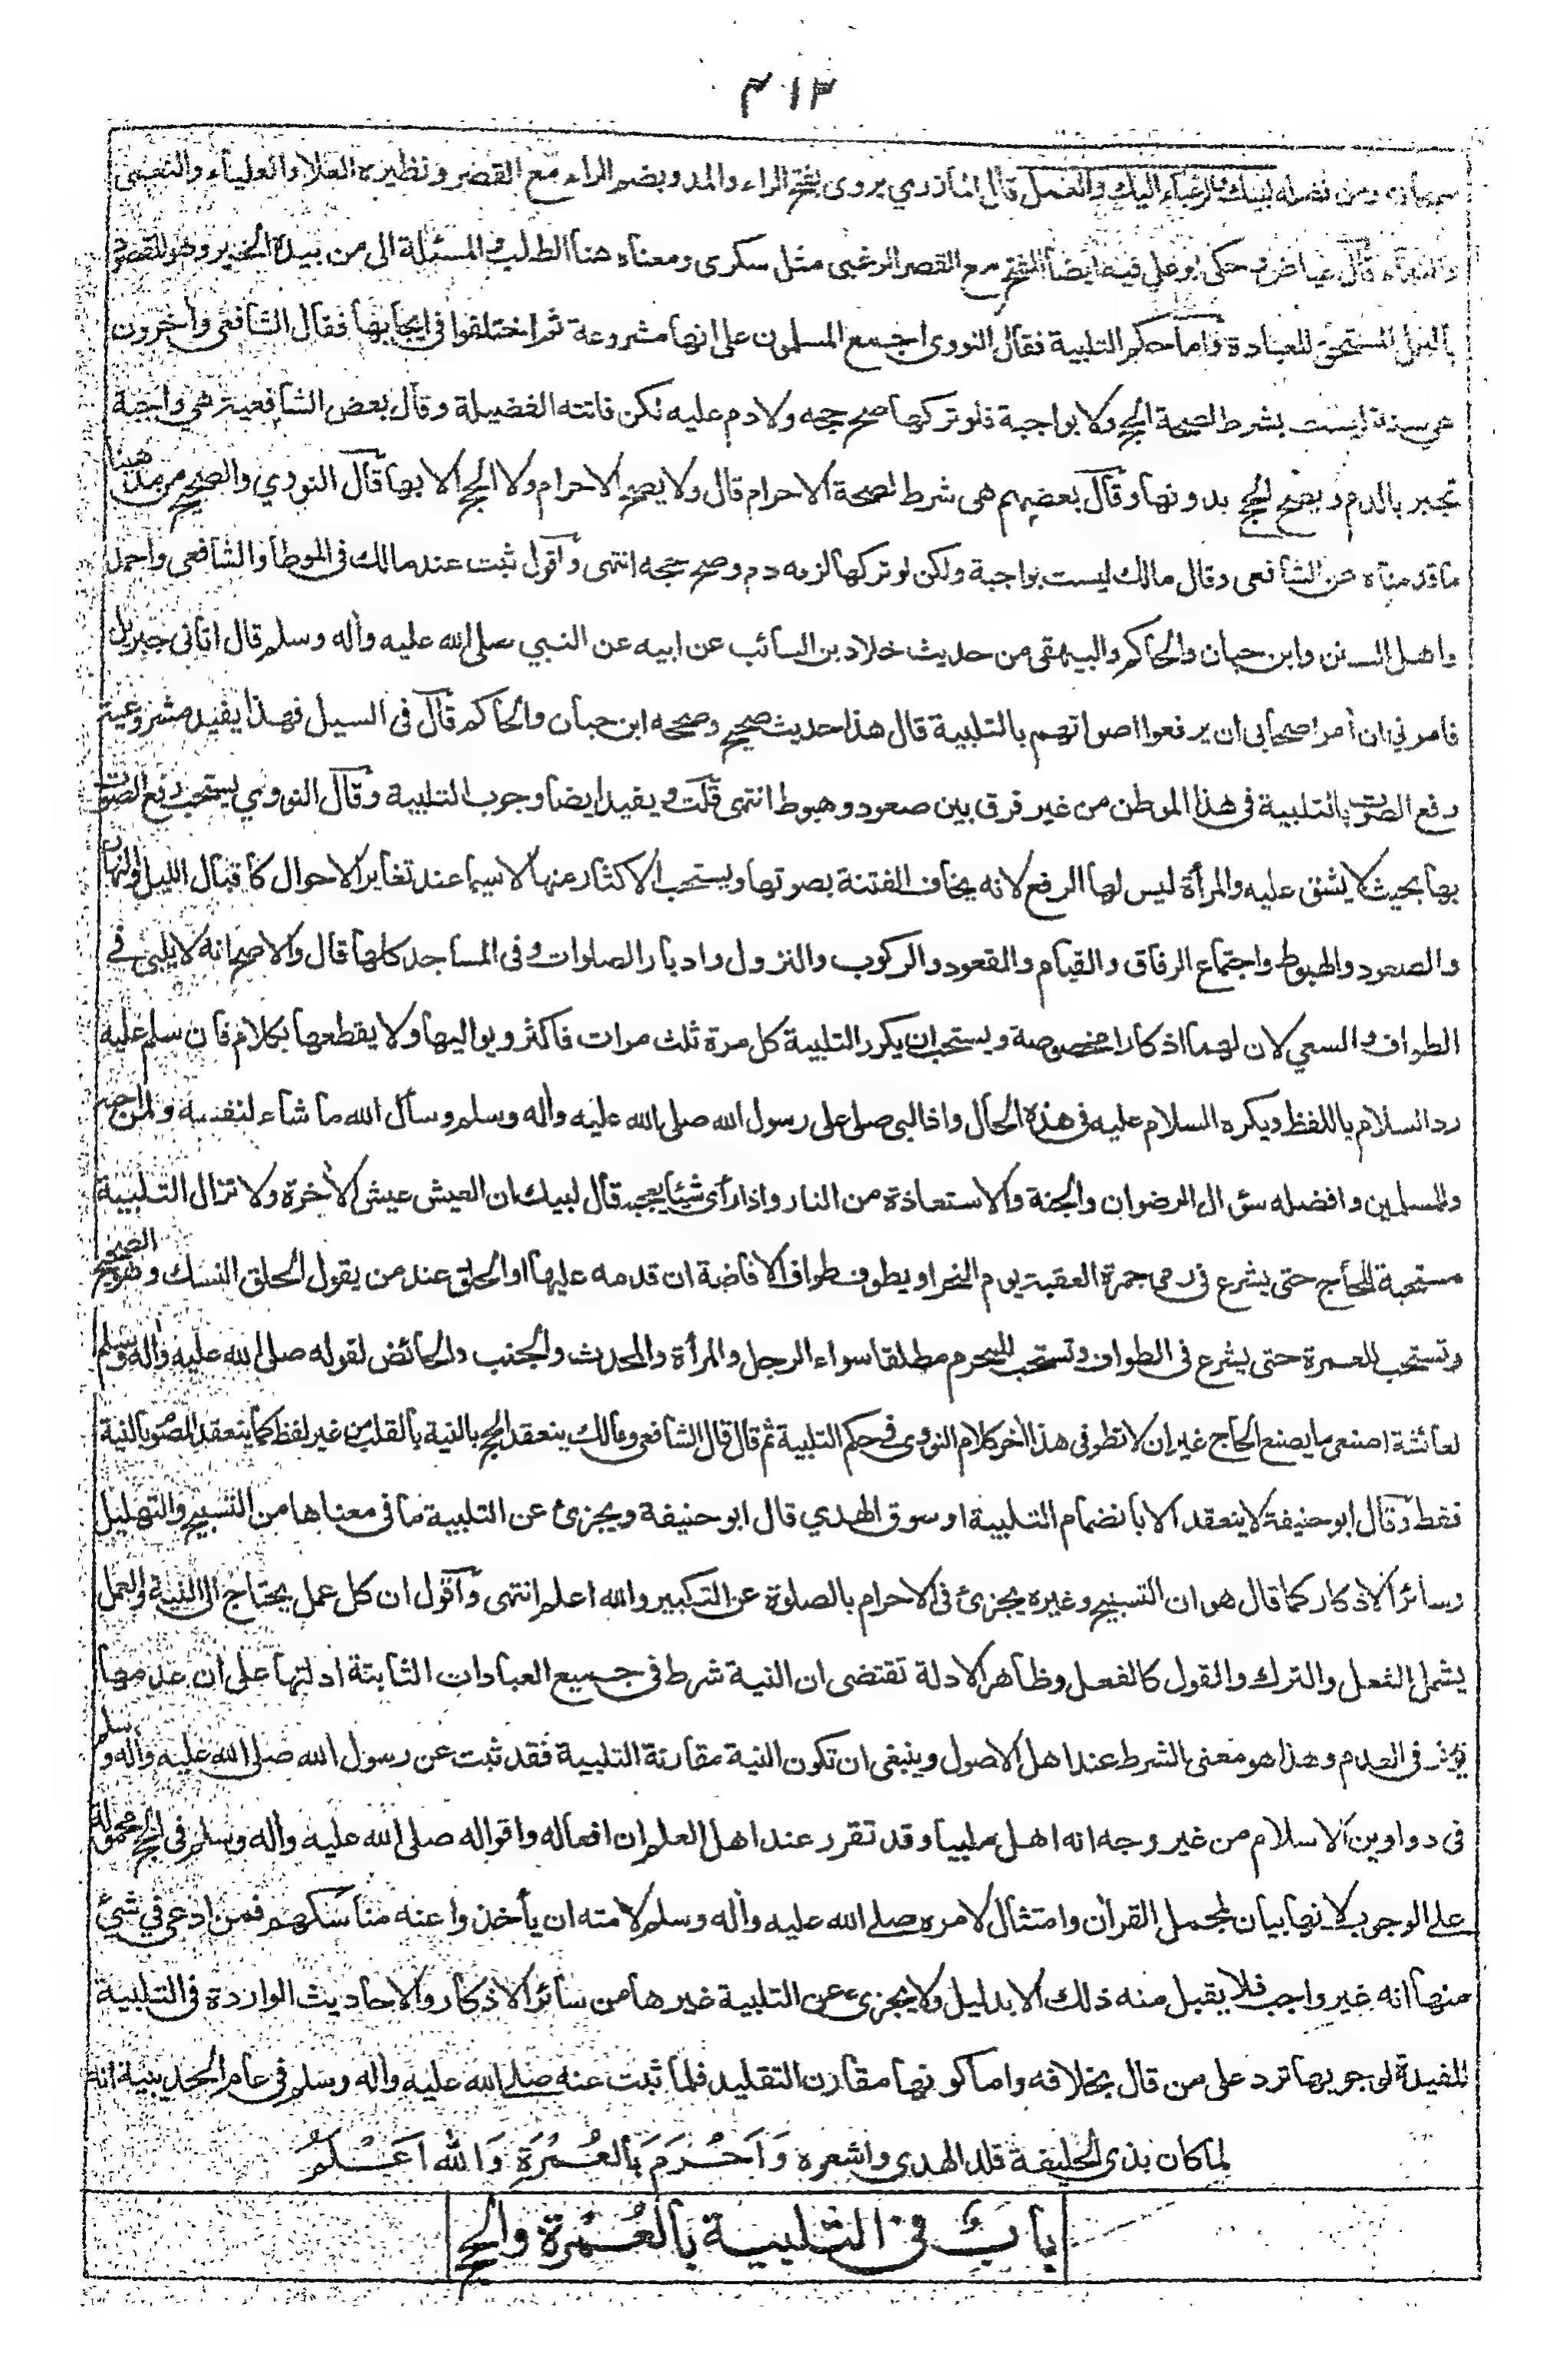 ٣١٣
سبحانه ومن فضله لبيك والرغباء اليك والعمل قال المازري يروى بفتح الراء والمد وبضم الراء مع القصر ونظيره العلا والعلياء والنعمى
والنعماء قال عياض وحكى ابو علي فيه ايضا الفتح مع القصر الرغبى مثل سكرى ومعناه هنا الطلب والمسئلة الى من بيده الخير وهو المقصود
بالعمل المستحق للعبادة واما حكم التلبية فقال النووى اجمع المسلمون على انها مشروعة ثم اختلفوا فى ايجابها فقال الشافعى وأخرون
هي سنة ليست بشرط لصحة الحج ولا بواجبة فلو تركها صح حجه ولا دم عليه لكن فاتته الفضيلة وقال بعض الشافعية هي واجبة
تجبر بالدم ويصح الحج بدونها وقال بعضهم هى شرط لصحة الاحرام قال ولا يصح الاحرام ولا الحج الا بها قال النووي والصحيح من مذهبنا
ما قدمناه عن الشافعى وقال مالك ليست بواجبة ولكن لو تركها لزمه دم وصح حجه انتهى وأقول ثبت عند مالك فى الموطأ والشافعى واحمد
واهل السنن وابن حبان والحاكم والبيهقى من حديث خلاد بن السائب عن ابيه عن النبي صلى الله عليه وأله وسلم قال اتانى جبريل
فامرني ان أمر اصحابى ان يرفعوا اصواتهم بالتلبية قال هذا حديث صحيح وصححه ابن حبان والحاكم قال فى السيل فهذا يفيد مشروعية
رفع الصوت بالتلبية فى هذا الموطن من غير فرق بين صعود وهبوط انتهى قلت ويفيد ايضا وجوب التلبية وقال النووي يستحب رفع الصوت
بها بحيث لا يشق عليه والمرأة ليس لها الرفع لانه يخاف الفتنة بصوتها ويستحب الاكثار منها لاسيما عند تغاير الاحوال كاقبال الليل والنهار
والصعود والهبوط واجتماع الرفاق والقيام والقعود والركوب والنزول وادبار الصلوات وفى المساجد كلها قال والاصح انه لا يلبي في
الطواف والسعي لان لهما اذكارا مخصوصة ويستحب ان يكرر التلبية كل مرة ثلث مرات فاكثر ويواليها ولا يقطعها بكلام فان سلم عليه
رد السلام باللفظ ويكره السلام عليه فى هذه الحال واذا لبى صلى على رسول الله صلى الله عليه وأله وسلم وسأل الله ما شاء لنفسه ولمن احبه
وللمسلمين وافضله سؤال الرضوان والجنة والاستعاذة من النار واذا رأى شيئا يعجبه قال لبيك ان العيش عيش الأخرة ولا تزال التلبية
مستحبة للحاج حتى يشرع فى رمى جمرة العقبة يوم النحر او يطوف طواف الافاضة ان قدمه عليها او الحلق عند من يقول الحلق النسك وهو الصحيح
وتستحب للعمرة حتى يشرع فى الطواف وتستحب للمحرم مطلقا سواء الرجل والمرأة والمحدث والجنب والحائض لقوله صلى الله عليه وأله وسلم
لعائشة اصنعى ما يصنع الحاج غير ان لا تطوفى هذا أخر كلام النووى فى حكم التلبية ثم قال قال الشافعى ومالك ينعقد الحج بالنية بالقلب من غير لفظ كما ينعقد الصوم بالنية
فقط وقال ابو حنيفة لا ينعقد الا بانضمام التلبية او سوق الهدي قال ابو حنيفة ويجزئ عن التلبية ما فى معناها من التسبيح والتهليل
وسائر الاذكار كما قال هو ان التسبيح وغيره يجزئ فى الاحرام بالصلوة عن التكبير والله اعلم انتهى وأقول ان كل عمل يحتاج الى النية والعمل
يشمل الفعل والترك والقول كالفعل وظاهر الادلة تقتضى ان النية شرط فى جميع العبادات الثابتة ادلتها على ان عدمها
يؤثر فى العدم وهذا هو معنى الشرط عند اهل الاصول وينبغى ان تكون النية مقارنة التلبية فقد ثبت عن رسول الله صلى الله عليه وأله وسلم
فى دواوين الاسلام من غير وجه انه اهل ملبيا وقد تقرر عند اهل العلم ان افعاله واقواله صلى الله عليه وأله وسلم فى الحج محمولة
على الوجوب لانها بيان لمجمل القرأن وامتثال لامره صلى الله عليه وأله وسلم لامته ان يأخذوا عنه مناسكهم فمن ادعى في شئ
منها انه غير واجب فلا يقبل منه ذلك الا بدليل ولا يجزئ عن التلبية غيرها من سائر الاذكار والاحاديث الواردة فى التلبية
المفيدة لوجوبها ترد على من قال بخلافه واما كونها مقارن التقليد فلما ثبت عنه صلى الله عليه وأله وسلم فى عام الحديبية انه
لما كان بذى الحليفة قلد الهدى واشعره وَاَحْرَمَ بِالعُمْرَةِ وَالله اَعْلَمُ
بابٌ فى التلبية بالعُمرة والحج